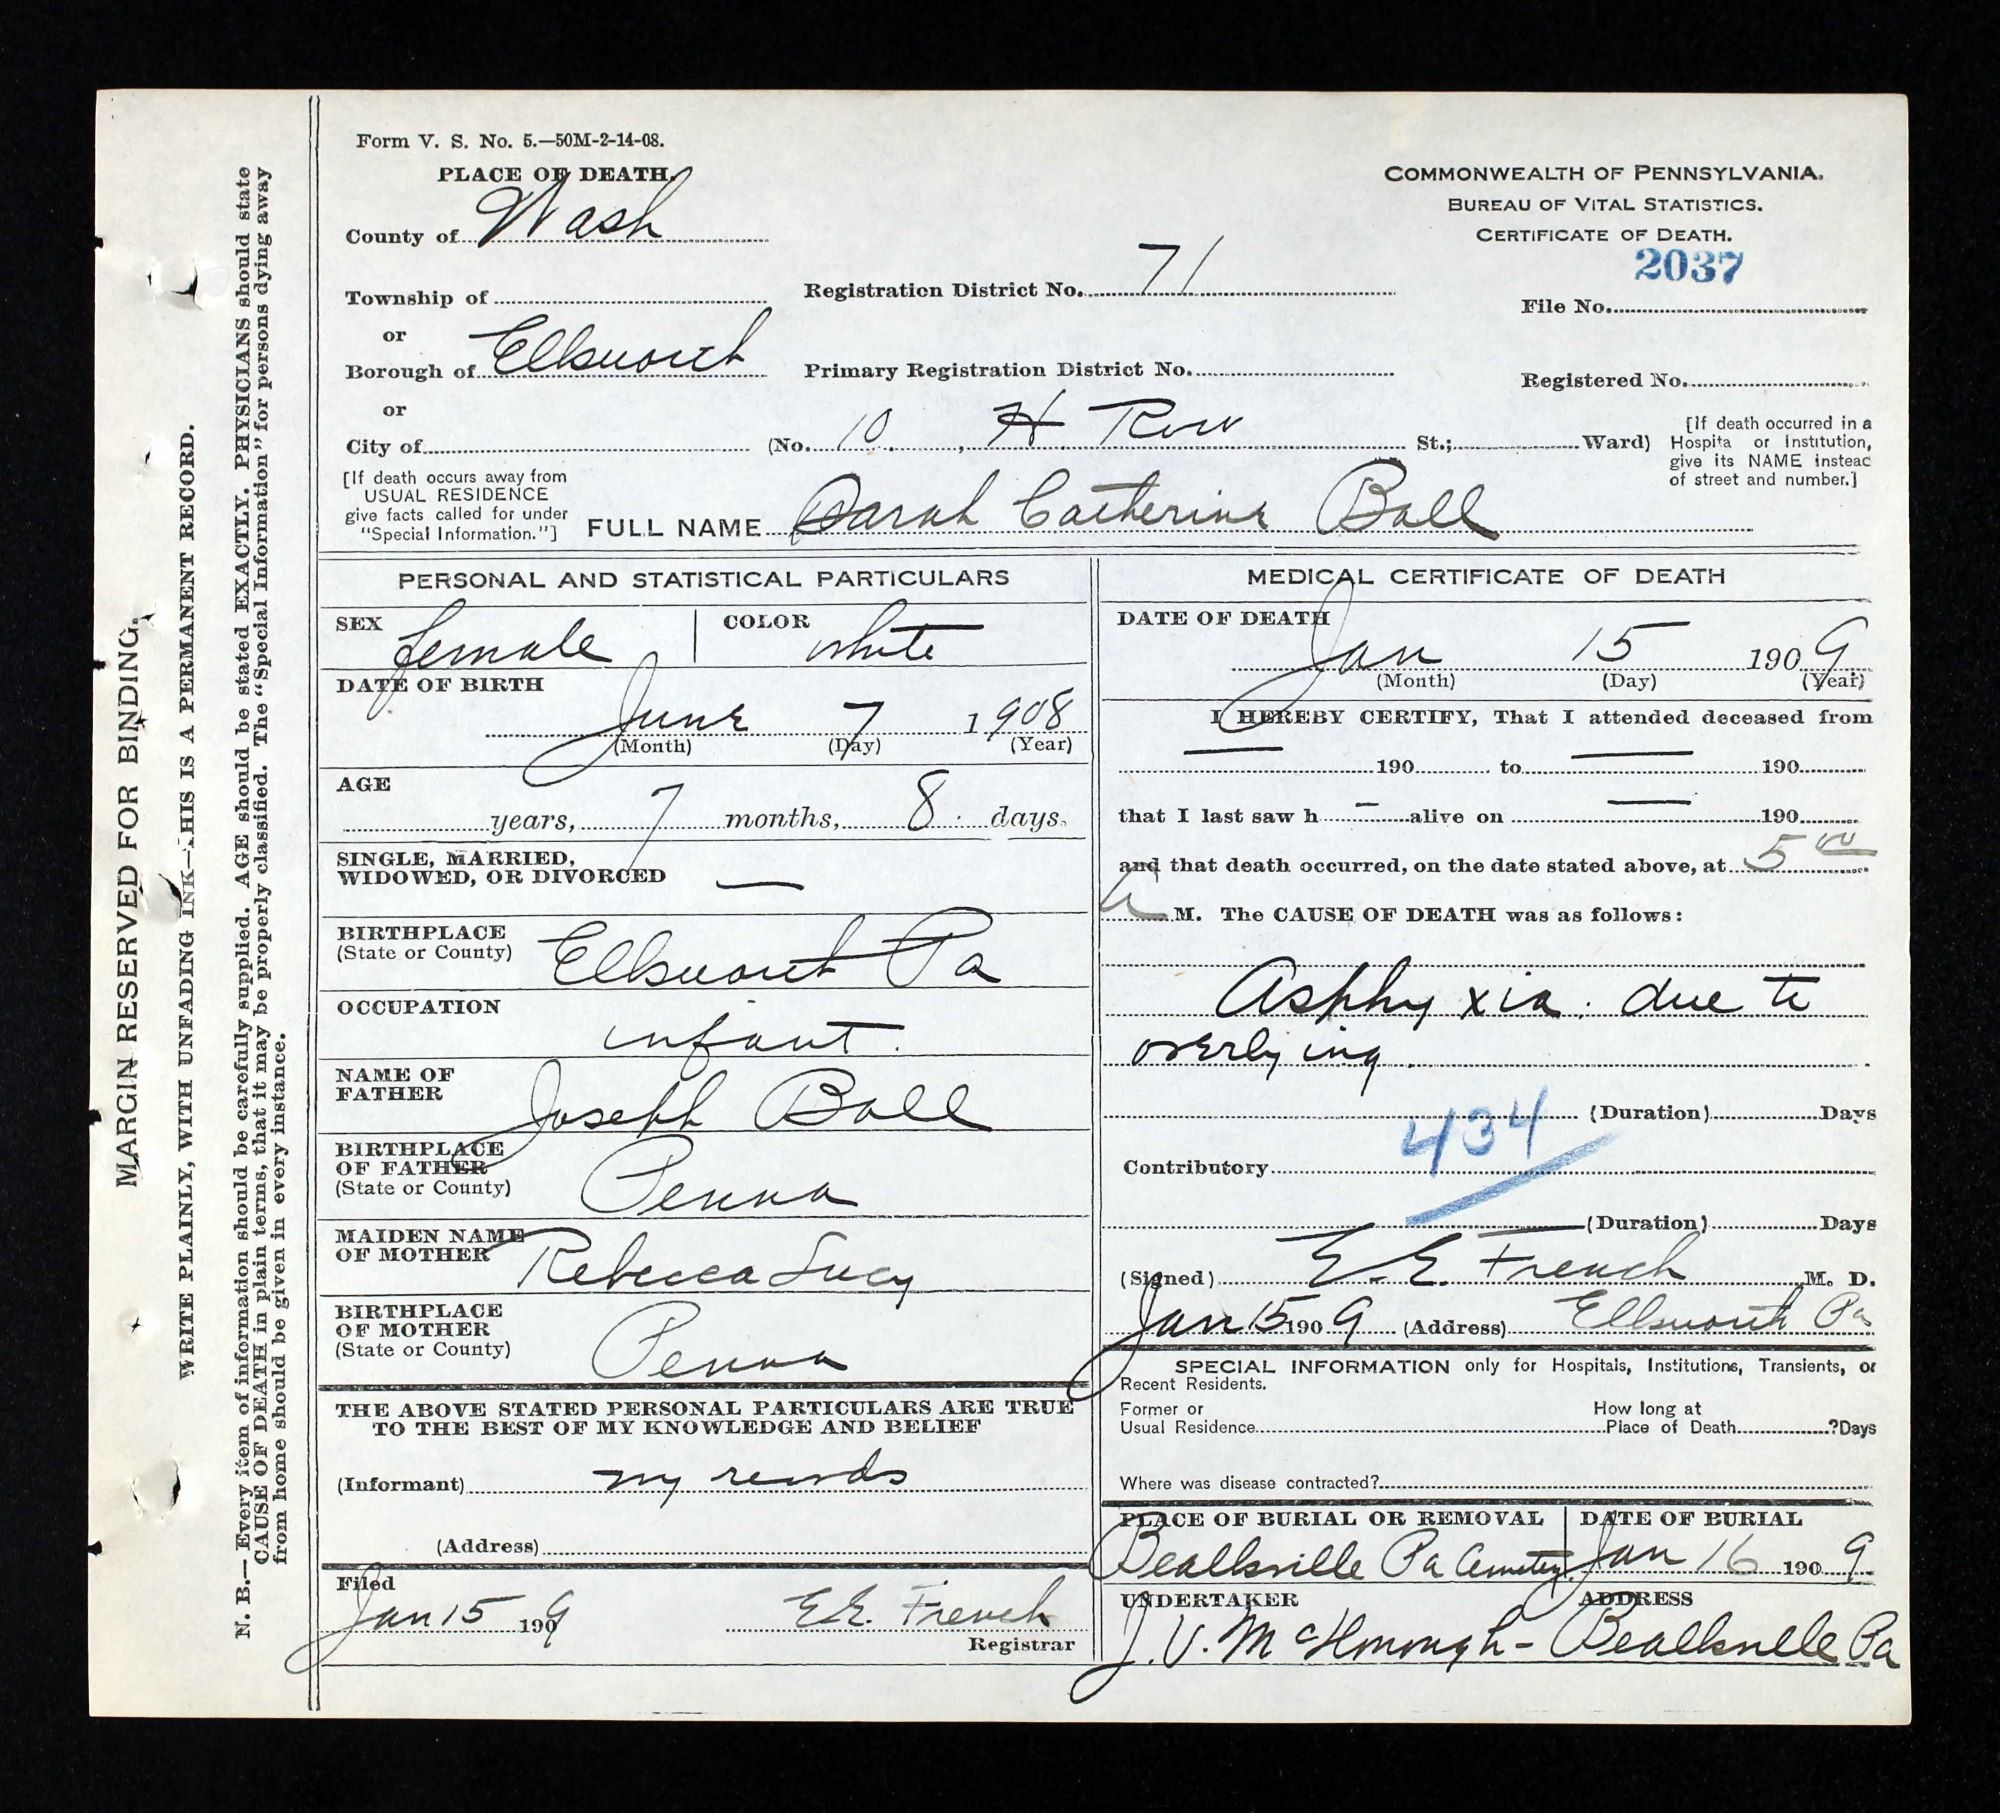 Form V. S. No. 5.—50M-2-14-08.
PLACE OF DEATH.
County of Wash
Township of
or
Borough of Ellsworth
or
City of
Registration District No. 71
Primary Registration District No.
(No. 10, H Row St.; Ward)
COMMONWEALTH OF PENNSYLVANIA.
BUREAU OF VITAL STATISTICS.
CERTIFICATE OF DEATH.
2037
File No.
Registered No.
[If death occurred in a
Hospita or Institution,
give its NAME insteac
of street and number.]
[If death occurs away from
USUAL RESIDENCE
give facts called for under
"Special Information."]
FULL NAME Sarah Catherine Ball
PERSONAL AND STATISTICAL PARTICULARS
SEX female
COLOR white
DATE OF BIRTH
June 7 1908
(Month) (Day) (Year)
AGE
years, 7 months, 8 days.
SINGLE, MARRIED,
WIDOWED, OR DIVORCED —
BIRTHPLACE
(State or County) Ellsworth Pa
OCCUPATION
infant.
NAME OF
FATHER Joseph Ball
BIRTHPLACE
OF FATHER
(State or County) Penna
MAIDEN NAME
OF MOTHER Rebecca Lucy
BIRTHPLACE
OF MOTHER
(State or County) Penna
THE ABOVE STATED PERSONAL PARTICULARS ARE TRUE
TO THE BEST OF MY KNOWLEDGE AND BELIEF
(Informant) my records
(Address)
Filed
Jan 15 1909 E.E. French
Registrar
MEDICAL CERTIFICATE OF DEATH
DATE OF DEATH
Jan 15 1909
(Month) (Day) (Year)
I HEREBY CERTIFY, That I attended deceased from
— 190 to — 190
that I last saw h — alive on — 190
and that death occurred, on the date stated above, at 5 00
A M. The CAUSE OF DEATH was as follows:
Asphyxia. due to
overlying
(Duration) Days
434
Contributory
(Duration) Days
(Signed) E. E. French M. D.
Jan 15 1909 (Address) Ellsworth Pa
SPECIAL INFORMATION only for Hospitals, Institutions, Transients, or
Recent Residents.
Former or
Usual Residence
How long at
Place of Death ?Days
Where was disease contracted?
PLACE OF BURIAL OR REMOVAL
Beallsville Pa Cemetery
DATE OF BURIAL
Jan 16 1909
UNDERTAKER
ADDRESS
J. V. Beallsville Pa
MARGIN RESERVED FOR BINDING.
WRITE PLAINLY, WITH UNFADING INK—THIS IS A PERMANENT RECORD.
N. B.—Every item of information should be carefully supplied. AGE should be stated EXACTLY. PHYSICIANS should state
CAUSE OF DEATH in plain terms, that it may be properly classified. The "Special Information" for persons dying away
from home should be given in every instance.